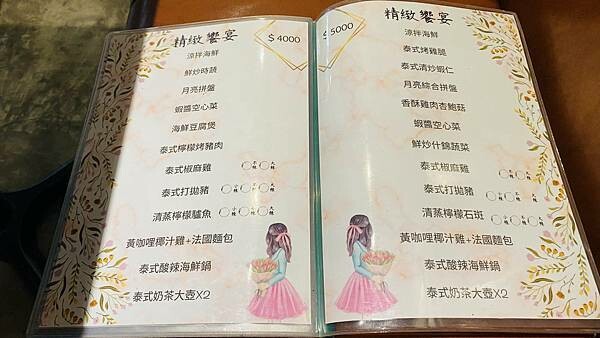 精緻饗宴
$4000
涼拌海鮮
鮮炒時蔬
月亮拼盤
蝦醬空心菜
海鮮豆腐煲
泰式檸檬烤豬肉
泰式椒麻雞
泰式打拋豬
清蒸檸檬鱸魚
黃咖哩椰汁雞+法國麵包
泰式酸辣海鮮鍋
泰式奶茶大壺X2
精緻饗宴
$5000
涼拌海鮮
泰式烤雞腿
泰式清炒蝦仁
月亮綜合拼盤
香酥雞肉杏鮑菇
蝦醬空心菜
鮮炒什錦蔬菜
泰式椒麻雞
泰式打拋豬
清蒸檸檬石斑
黃咖哩椰汁雞+法國麵包
泰式酸辣海鮮鍋
泰式奶茶大壺X2